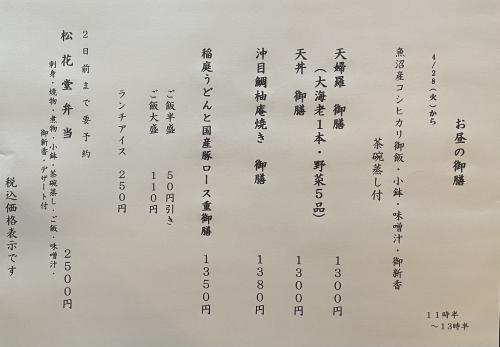 お昼の御膳
11時半
～13時半
4/28(火)から
魚沼産コシヒカリ御飯・小鉢・味噌汁・御新香
茶碗蒸し付
天婦羅 御膳 1300円
(大海老1本・野菜5品)
天丼 御膳 1300円
沖目鯛柚庵焼き 御膳 1380円
稲庭うどんと国産豚ロース重御膳 1350円
ご飯半盛 50円引き
ご飯大盛 110円
ランチアイス 250円
2日前まで要予約
松花堂弁当 2500円
刺身・焼物・煮物・小鉢・茶碗蒸し・ご飯・味噌汁・
御新香・デザート付
税込価格表示です